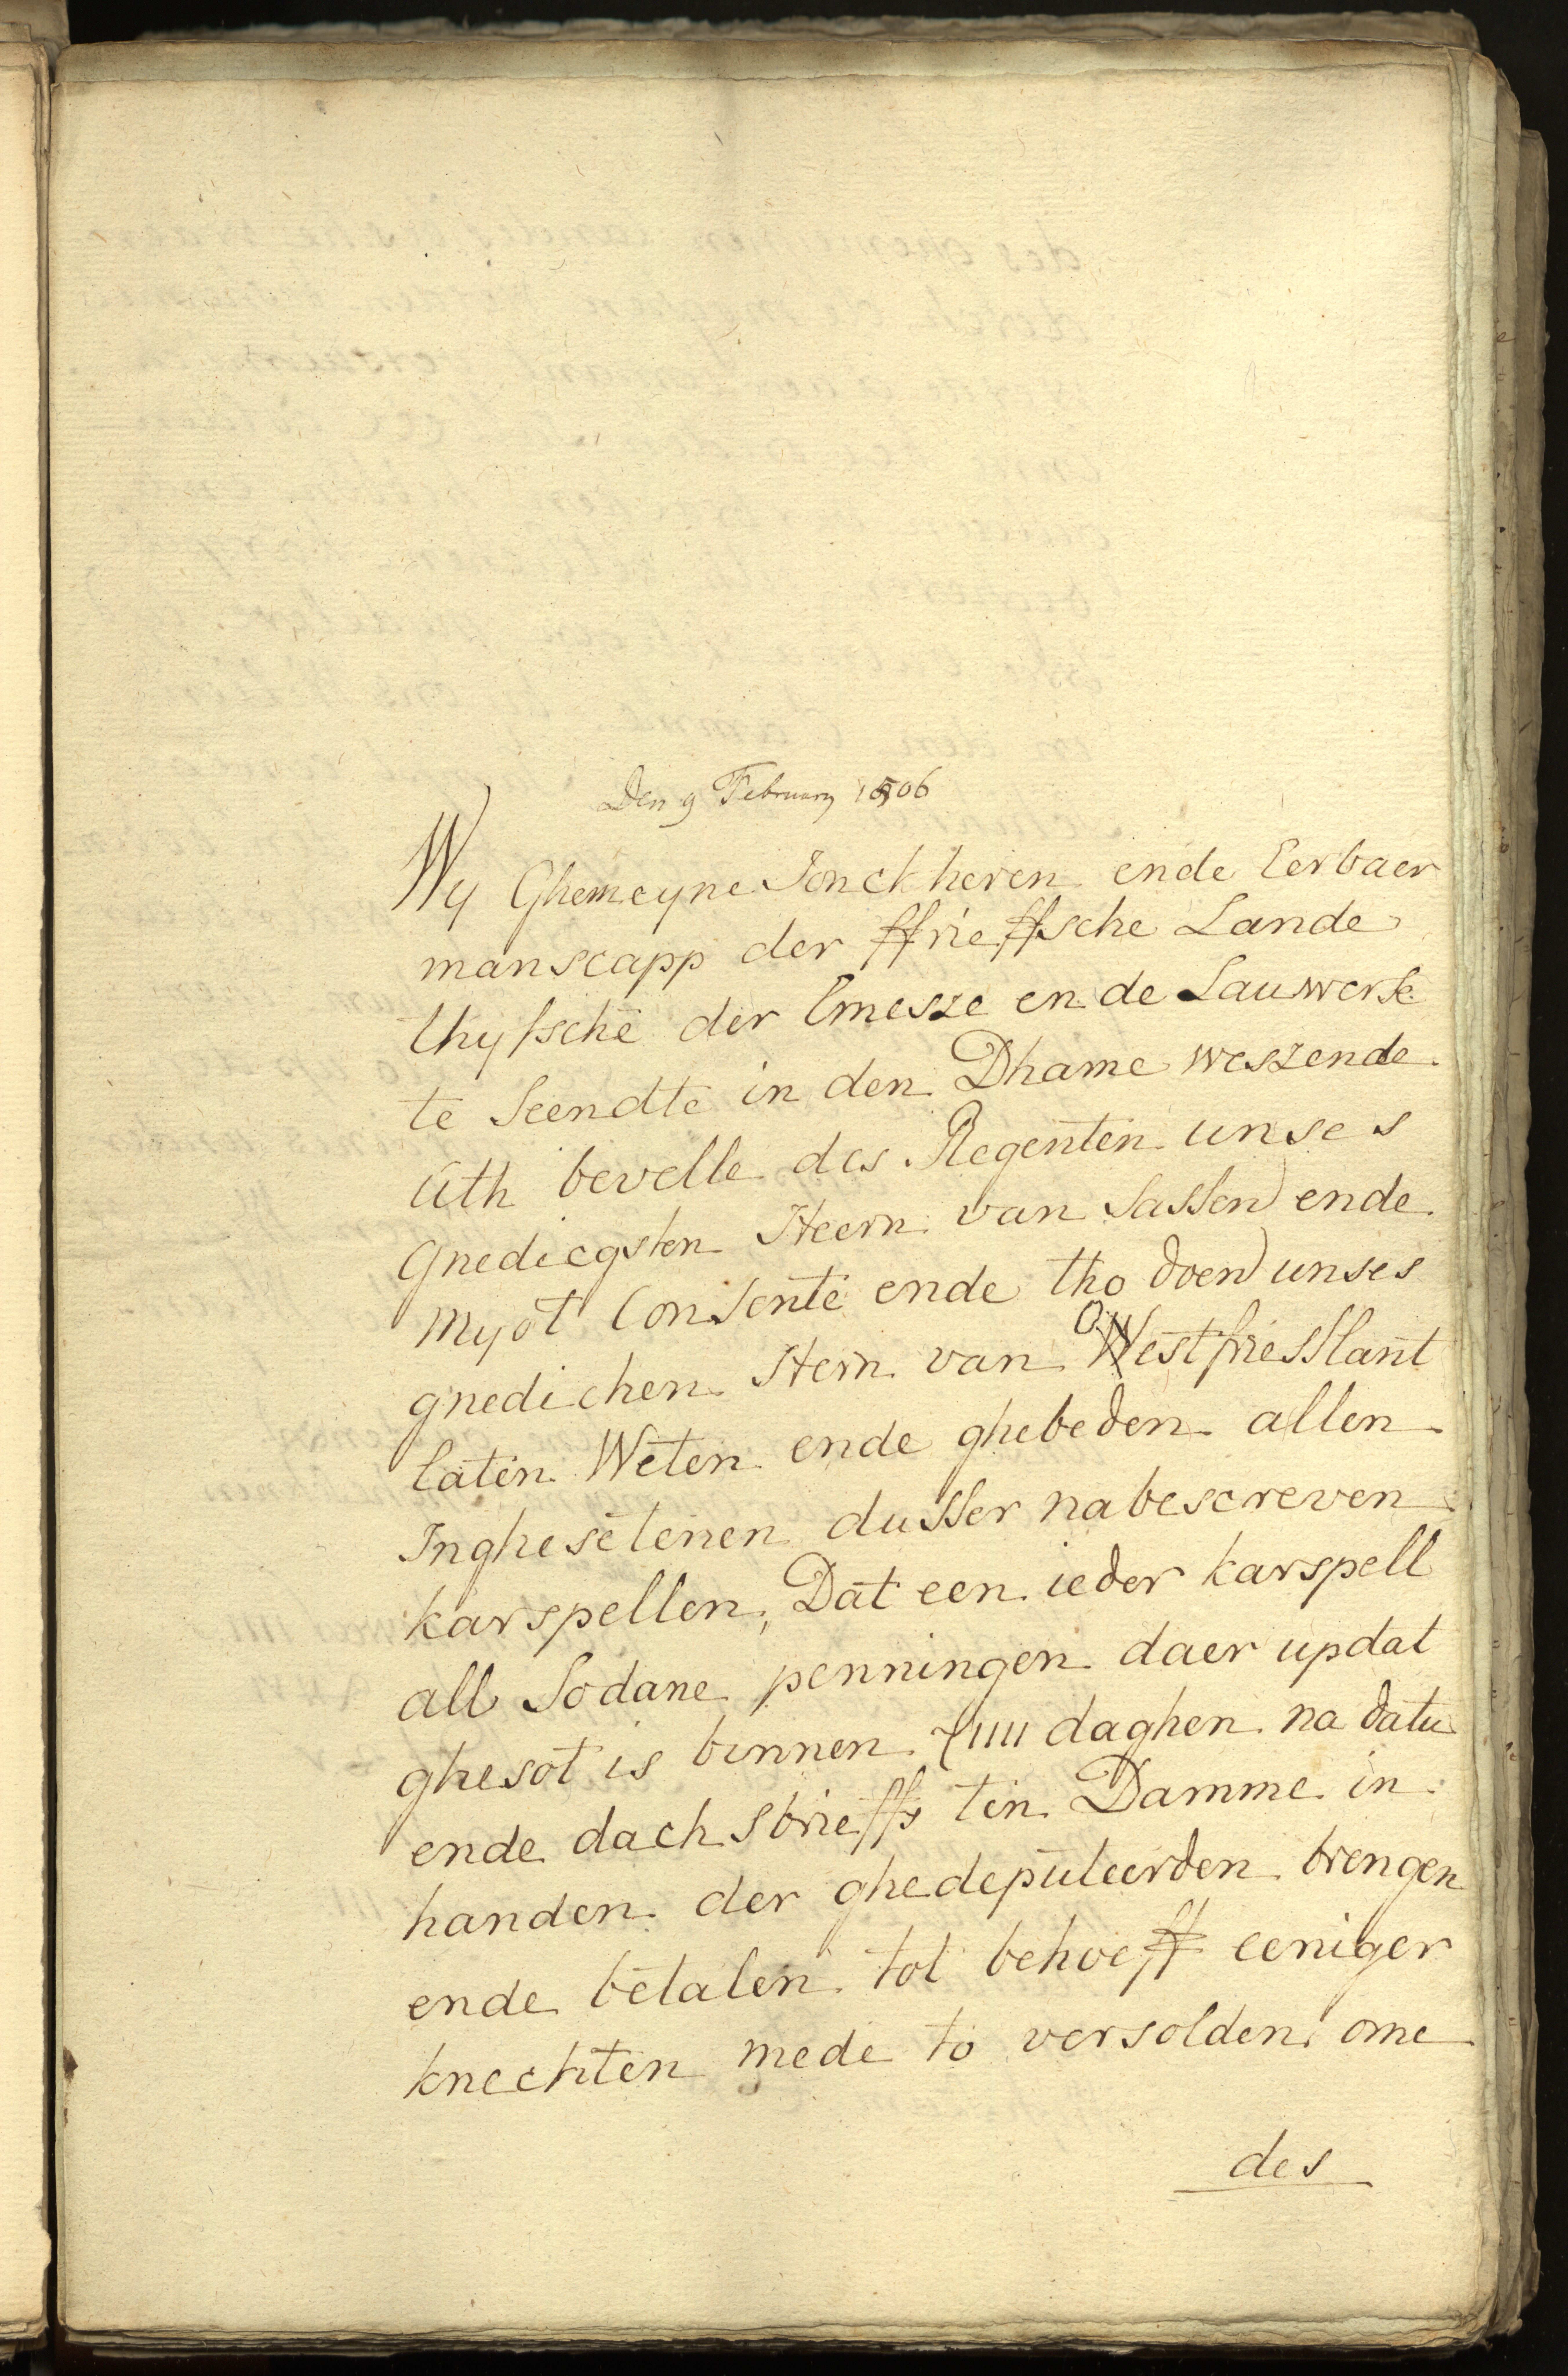 Den 9 February 1506
Wy Ghemeyne Jonckheren ende Eerbaer
manscapp der ffrieffsche Lande
thysschē der Emesze ende Lauwerse
te Seendte in den Dhame weszende
uth bevelle des Regenten unses
gnedicgsten Heern van Sassen ende
myōt Consente ende tho doen unses
gnedichen Hern van Oestfriesslant
laten Weten ende ghebeden allen
Inghesetenen dusser nabescreven
karspellen, Dat een ieder karspell
all Sodane penningen daer updat
ghesot is binnen XIIII daghen na datu
ende dach sbrieffs ten Damme in
handen der ghedeputeerden brengen
ende betalen tot behoeff eeniger
knechten mede to versolden ome
des